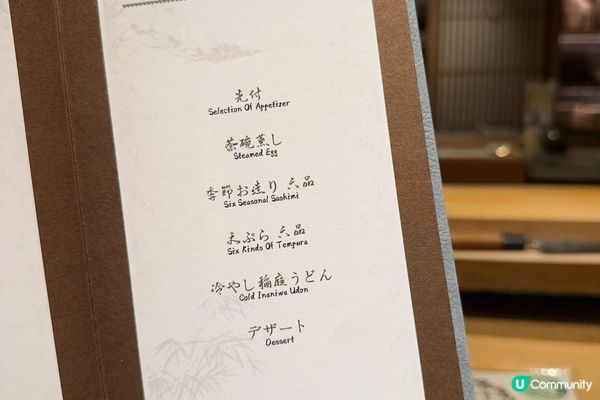 先付
Selection Of Appetizer
茶碗蒸し
Steamed Egg
季節お造り 六品
Six Seasonal Sashimi
天ぷら 六品
Six Kinds Of Tempura
冷やし稲庭うどん
Cold Inaniwa Udon
デザート
Dessert
U Community